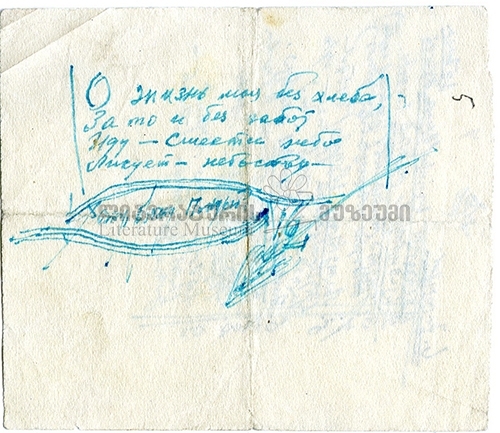 О жизнь моя без хлеба,
За то и без забот
Иду - Смеется небо
Ликует - небо
ლიტერატურის მუზეუმი
Literature Museum